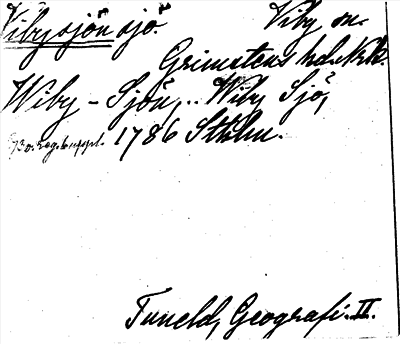 Vibysjön sjö. Viby sn.
Grimstens hd. Nrk.
Wiby-Sjön,.. Wiby Sjö,
1786 Sthlm.
Tuneld, Geografi. II.